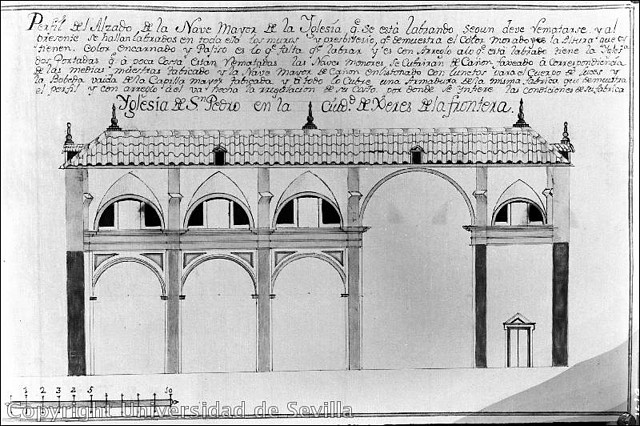 Perfil del Alzado, de la Nave Mayor de la Iglesia, q. Se està labrando segun deve Rematarse, y al
presente se hallan labrados en todo este los muros y presbiterio, q. demuestra el Color morado,
tienen. Color encarnado y Pajizo es lo q. falta q. labrar y es con Arreglo alo q. està labrado tiene la
dos Portadas q. à poca Costa estan Rematadas las Naves menores se Cubriràn de Cañon, faxeado à Correspondencia
de las medias muestras y la Nave Mayor de Cañon con Lunetos para el Cuerpo de Luces y
la Bobeda vaida de la Capilla mayor y à todo lo Cubre una Armadura de la misma fabrica que demuestra
el perfil y con arreglo àel va hecha la regulacion de su Costo por donde se Ynfiere las Condiciones de su fabrica
Yglesia de Sn. Pedro en la ciud. de Xeres de la frontera.
1 2 3 4 5 10
Copyright Universidad de Sevilla